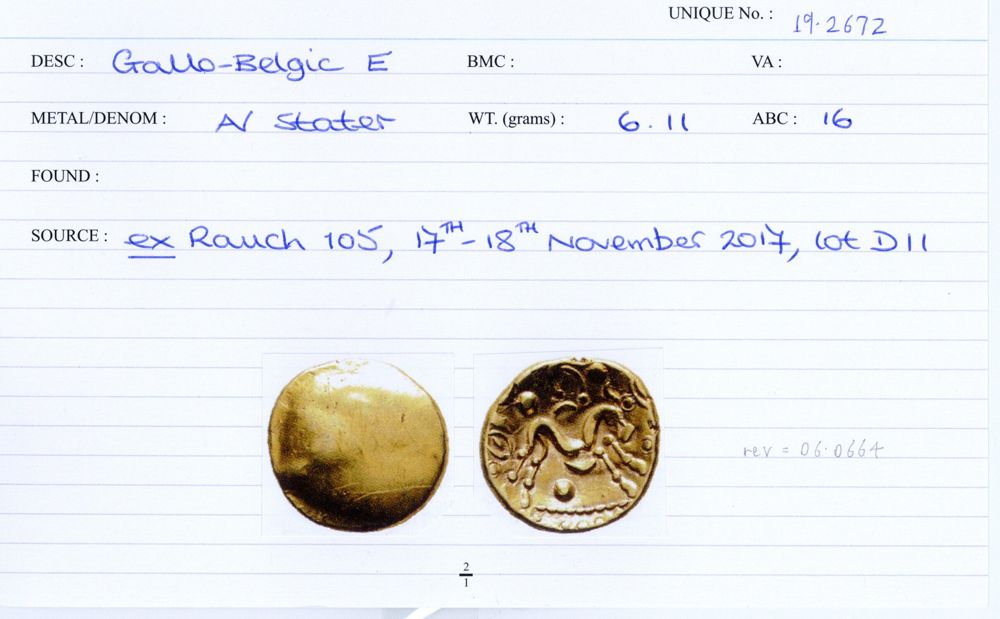 UNIQUE No. : 19.2672
DESC : Gallo-Belgic E BMC : VA :
METAL/DENOM : AV Stater WT. (grams) : 6.11 ABC : 16
FOUND :
SOURCE : ex Rauch 105, 17TH-18TH November 2017, lot D11
rev = 06.0664
2
1